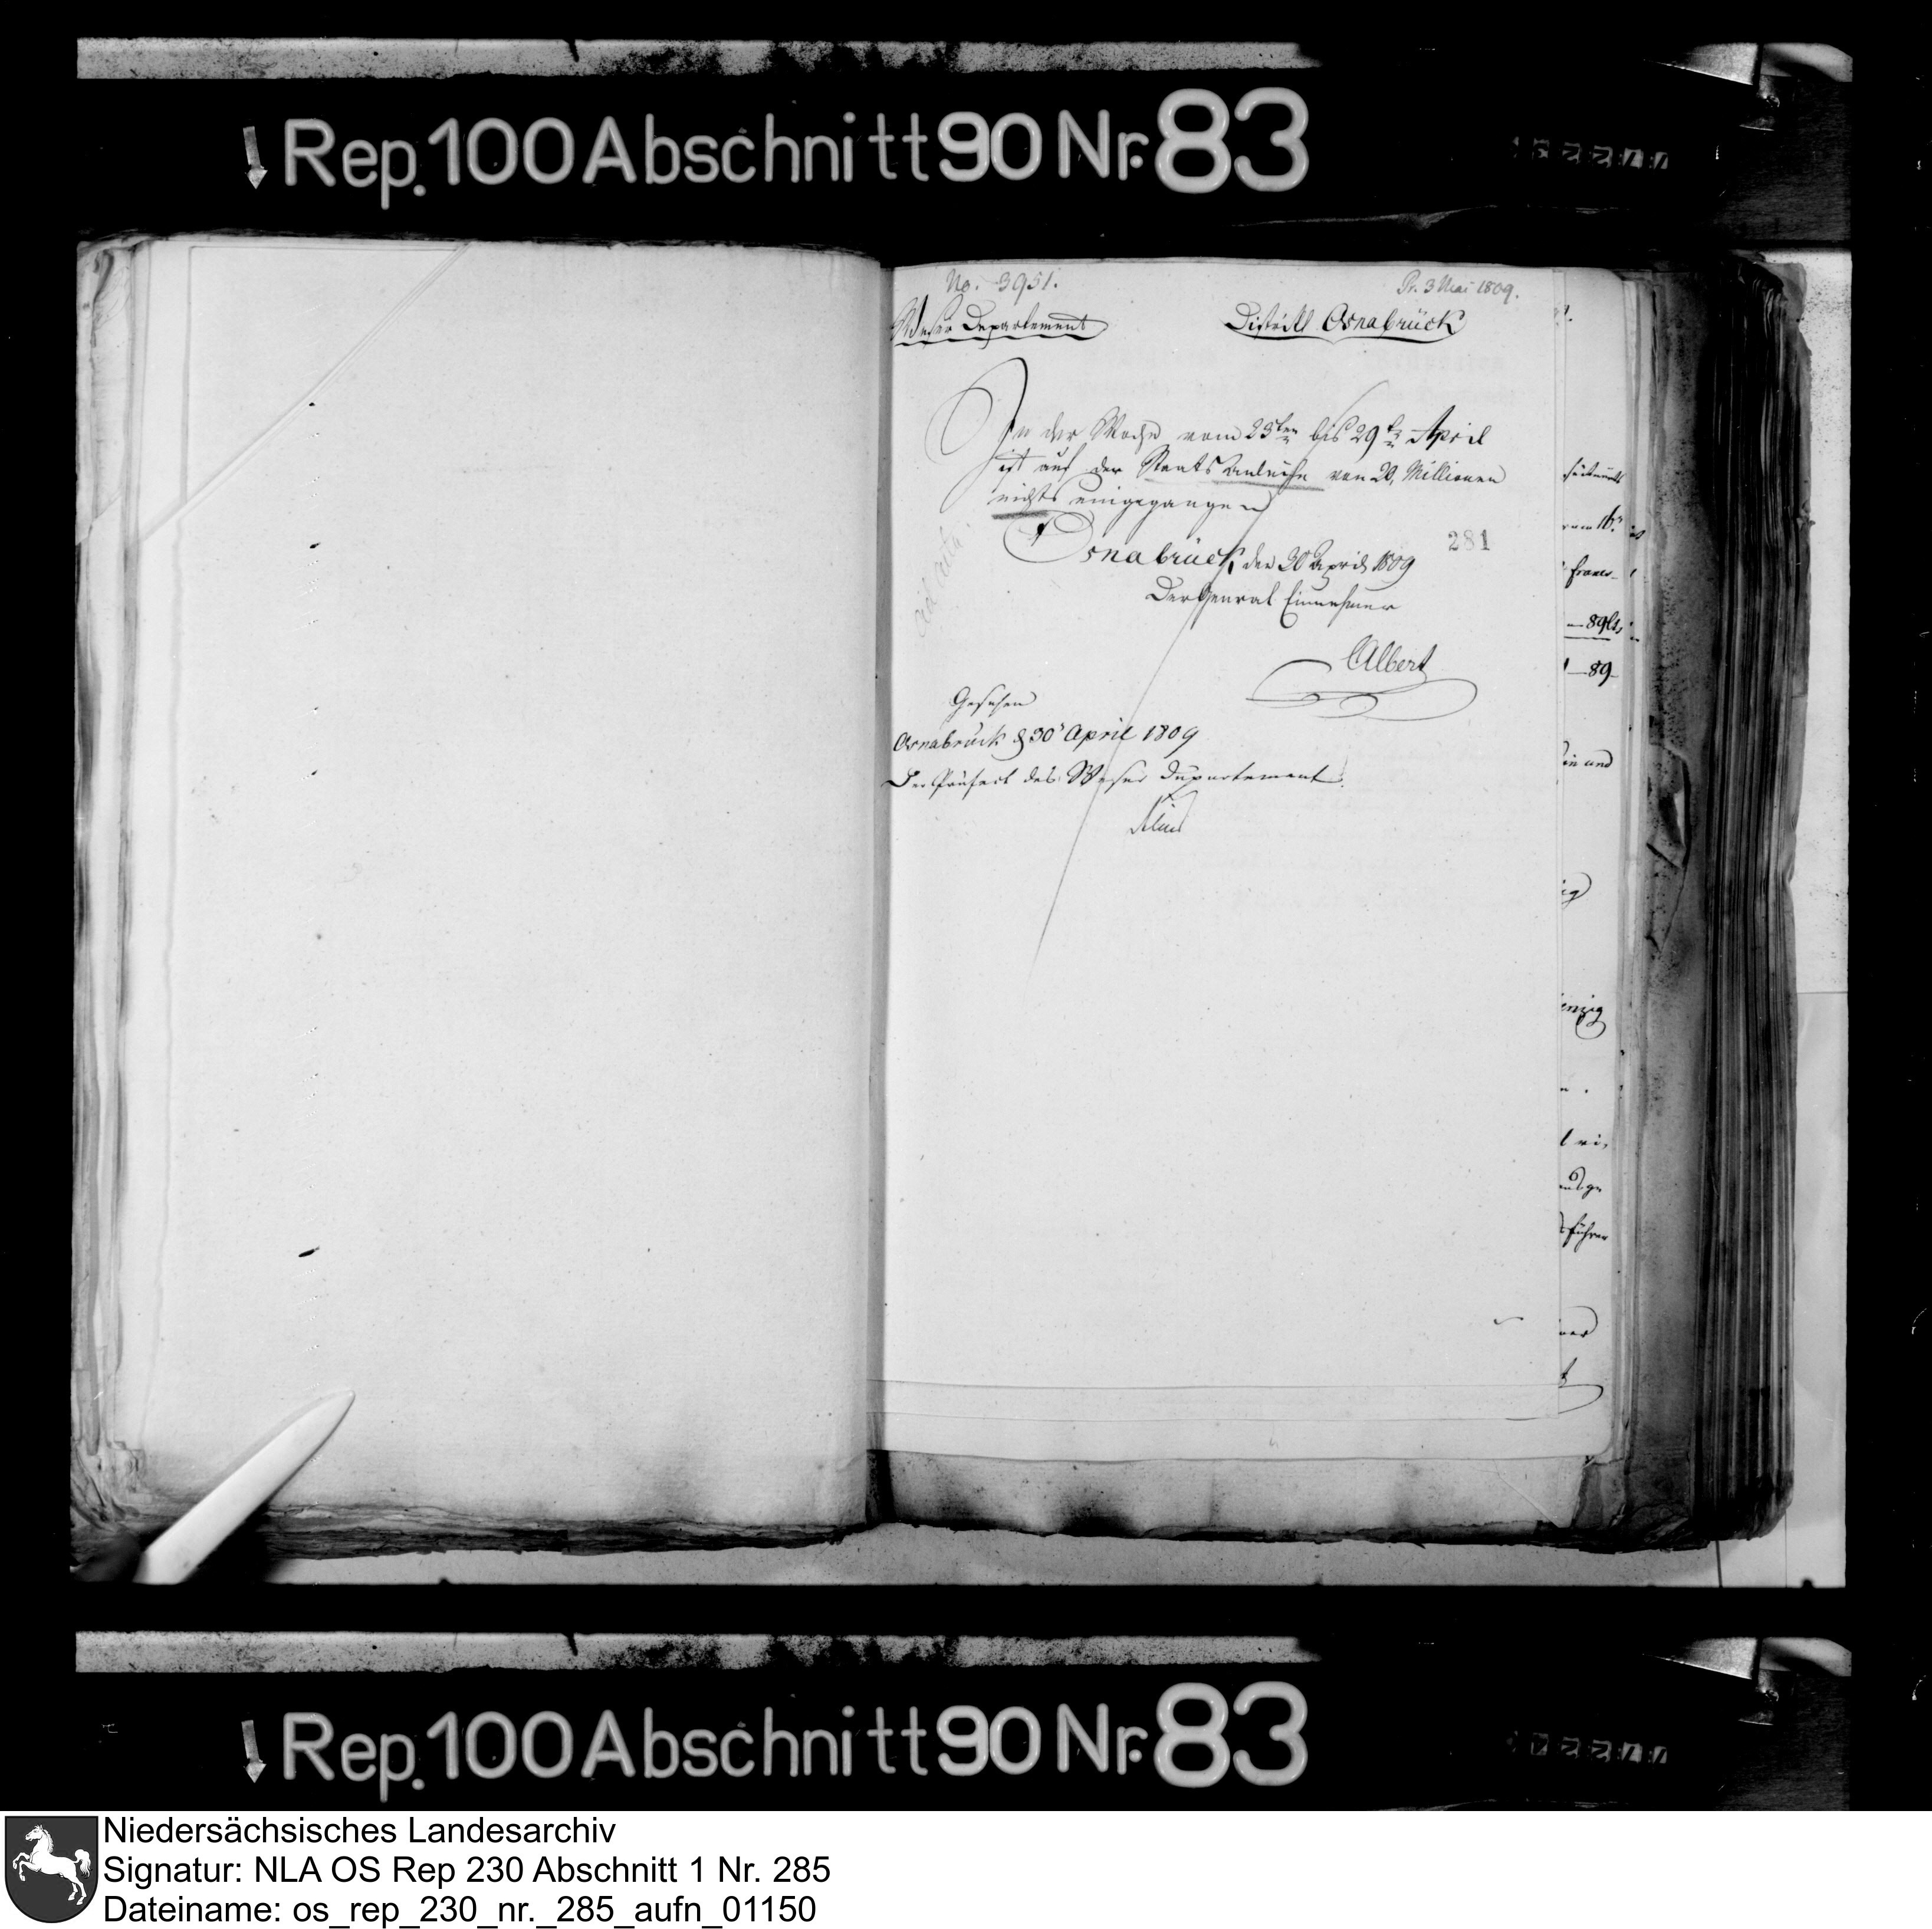 Rep. 100 Abschnitt 90 Nr. 83
No. 3951.
Pr. 3 Mai 1809.
Weser Departement
District Osnabrück
In der Woche vom 23ten bis 29ten April
ist auf der Staats Anleihe von 20 Millionen
nichts eingegangen
Osnabrück, den 30 April 1809
281
Der General Einnehmer
Albert
ad acta
Gesehen
Osnabrück d 30 April 1809
Der Präfect des Weser Departement.
fein und
führen
Rep. 100 Abschnitt 90 Nr. 83
Niedersächsisches Landesarchiv
Signatur: NLA OS Rep 230 Abschnitt 1 Nr. 285
Dateiname: os_rep_230_nr._285_aufn_01150